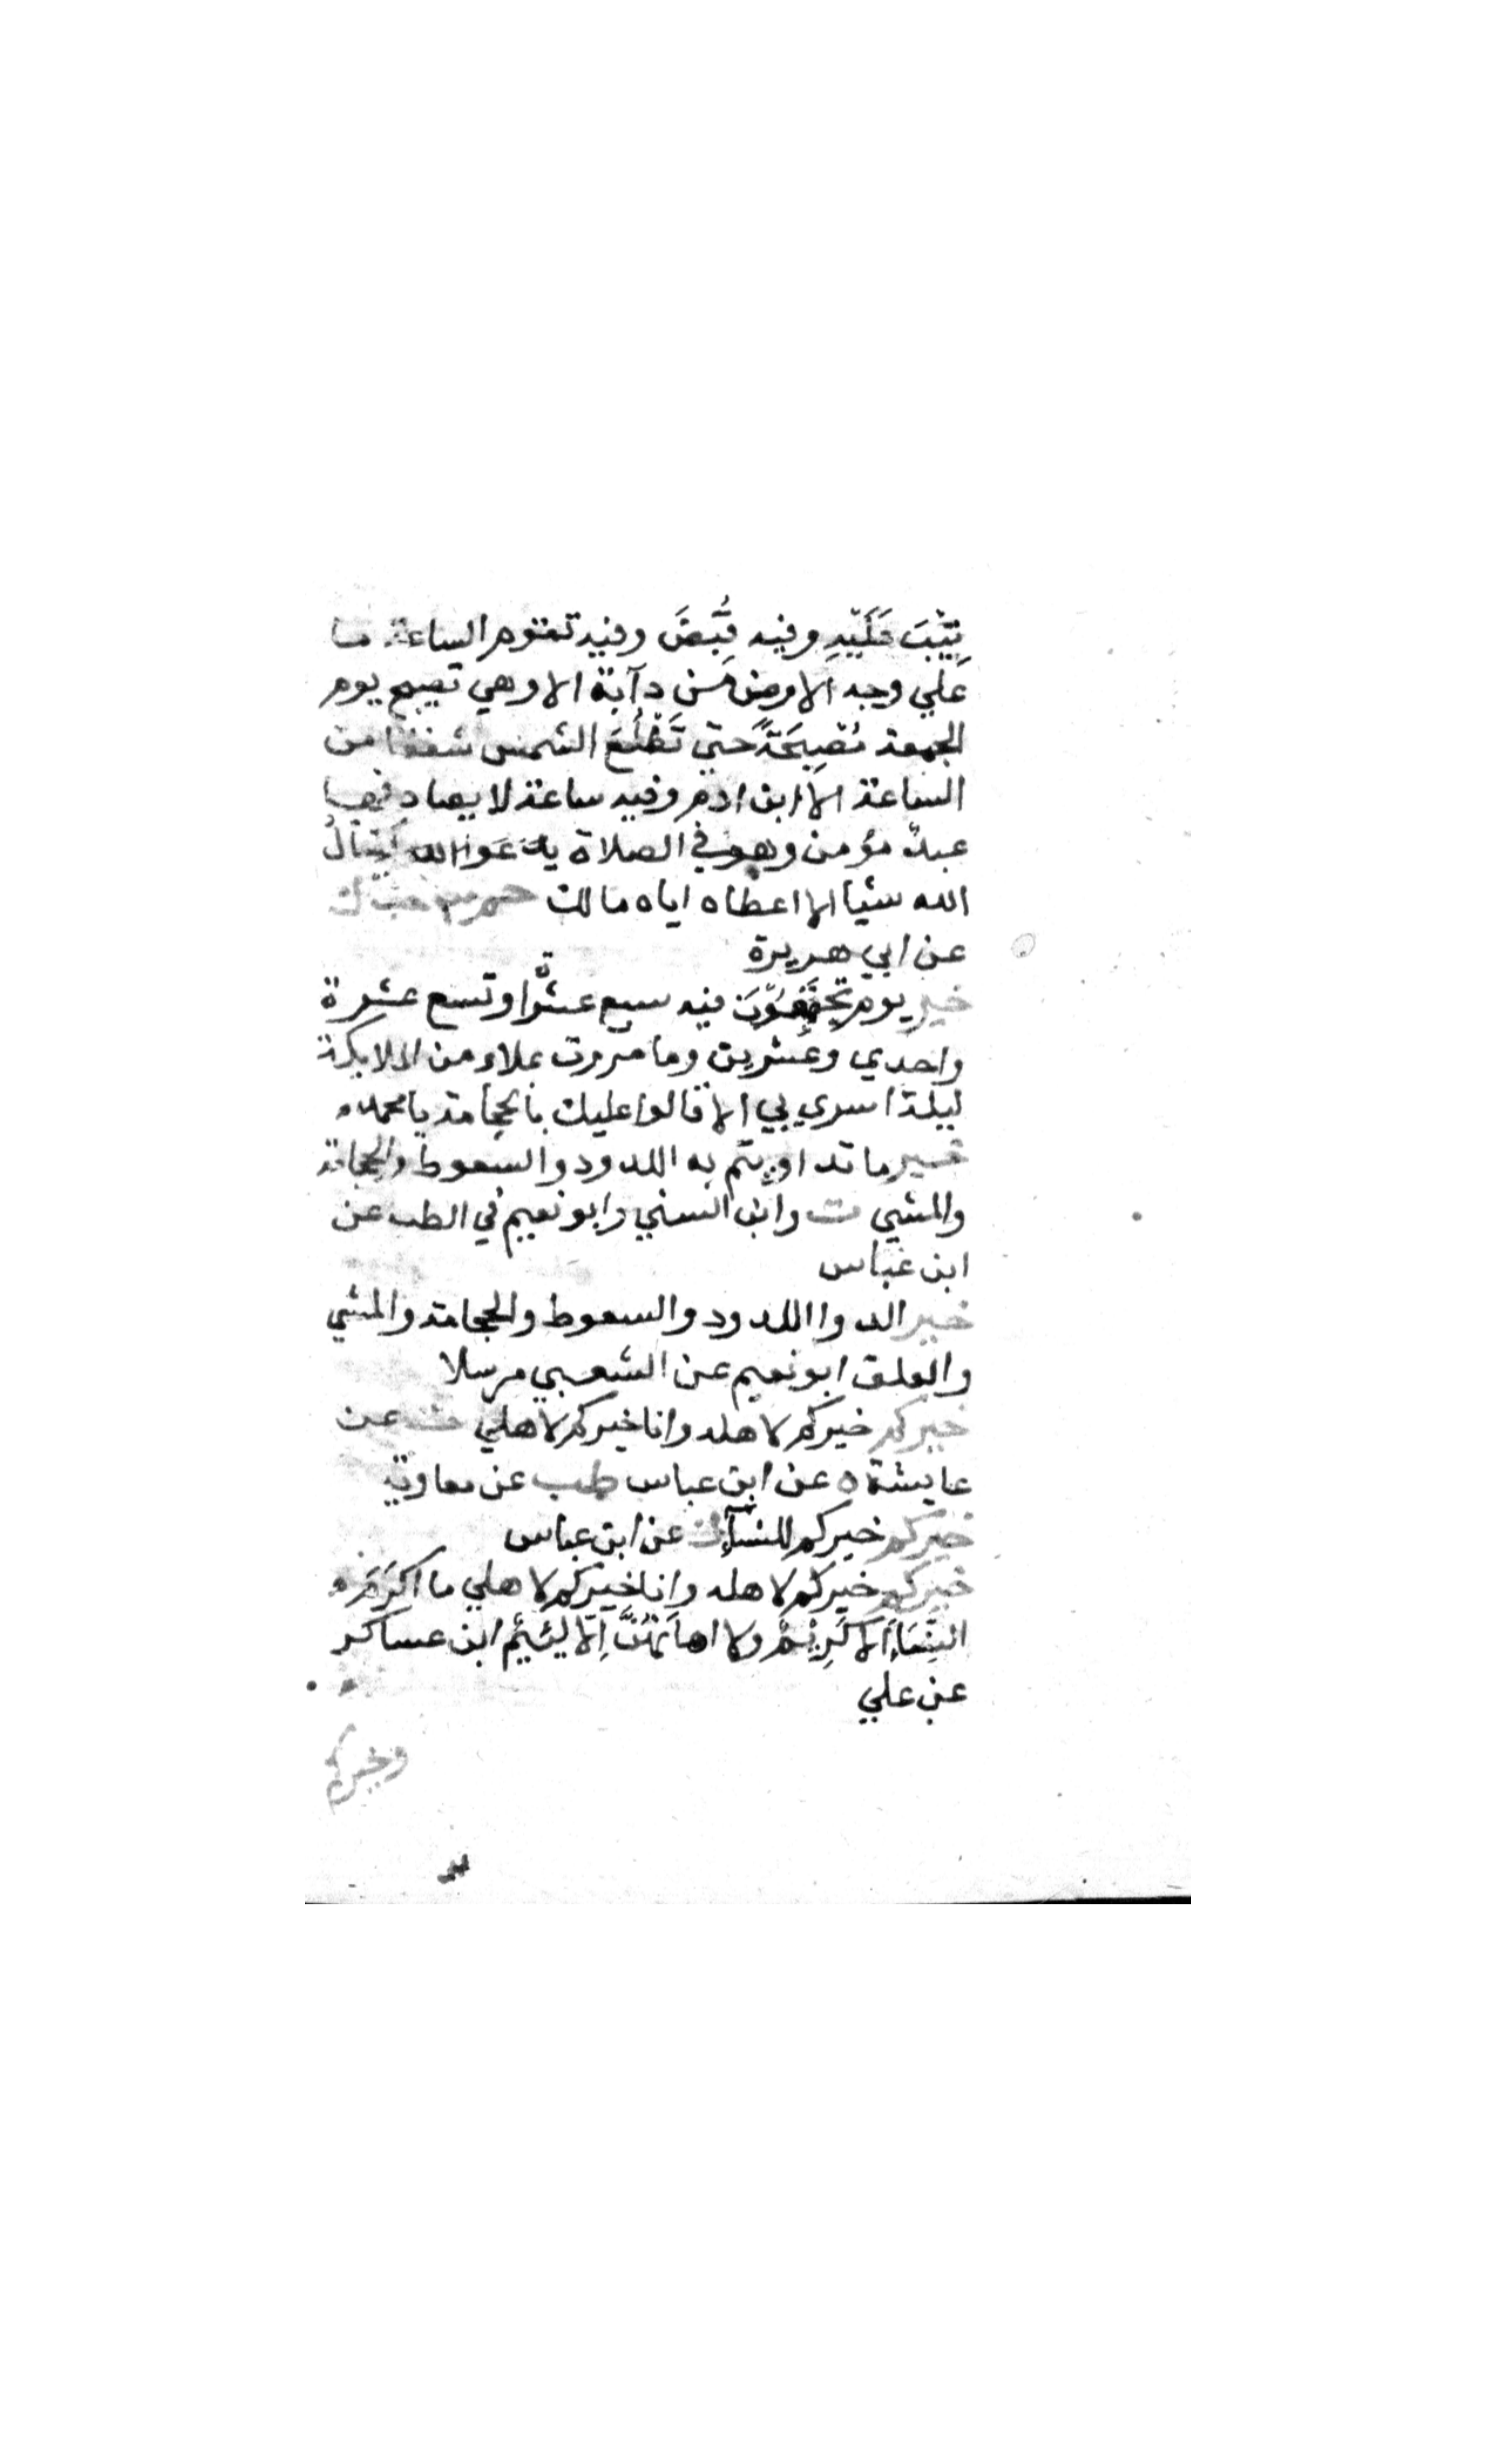 تِيْبَ عَلَيْهِ وفيه قُبِضَ وفيه تقوم الساعة ما
علي وجه الارض من دآبة الا وهي تصبح يوم
الجمعة مُصِيخَةً حتي تَطْلُعَ الشمس شفقا من
الساعة الا ابن ادم وفيه ساعة لا يصادفها
عبد مؤمن وهو في الصلاة يدعوا الله يسألُ
الله شيا الا اعطاه اياه مالك حم حب ك
عن ابي هريرة
خير يوم تحتجمون فيه سبع عشرة وتسع عشرة
واحدي وعشرين وما مررت بملاء من الملايكة
ليلة اسري بي الا قالوا عليك بالحجامة يا محمد
خير ما تداويتم به اللدود والسعوط والحجامة
والمشي ت وابن السني وابو نعيم في الطب عن
ابن عباس
خير الدوا اللدود والسعوط والحجامة والمشي
والعلق ابو نعيم عن الشعبي مرسلا
خيركم خيركم لاهله وانا خيركم لاهلي ت عن
عايشة ه عن ابن عباس طب عن معاوية
خيركم خيركم للنسآء ك عن ابن عباس
خيركم خيركم لاهله وانا خيركم لاهلي ما اكرَمَ
النِّسَاءَ اِلا كَرِيْمٌ ولا اهانَهُنَّ اِلّا لَئِيْمٌ ابن عساكر
عن علي
وخيركم